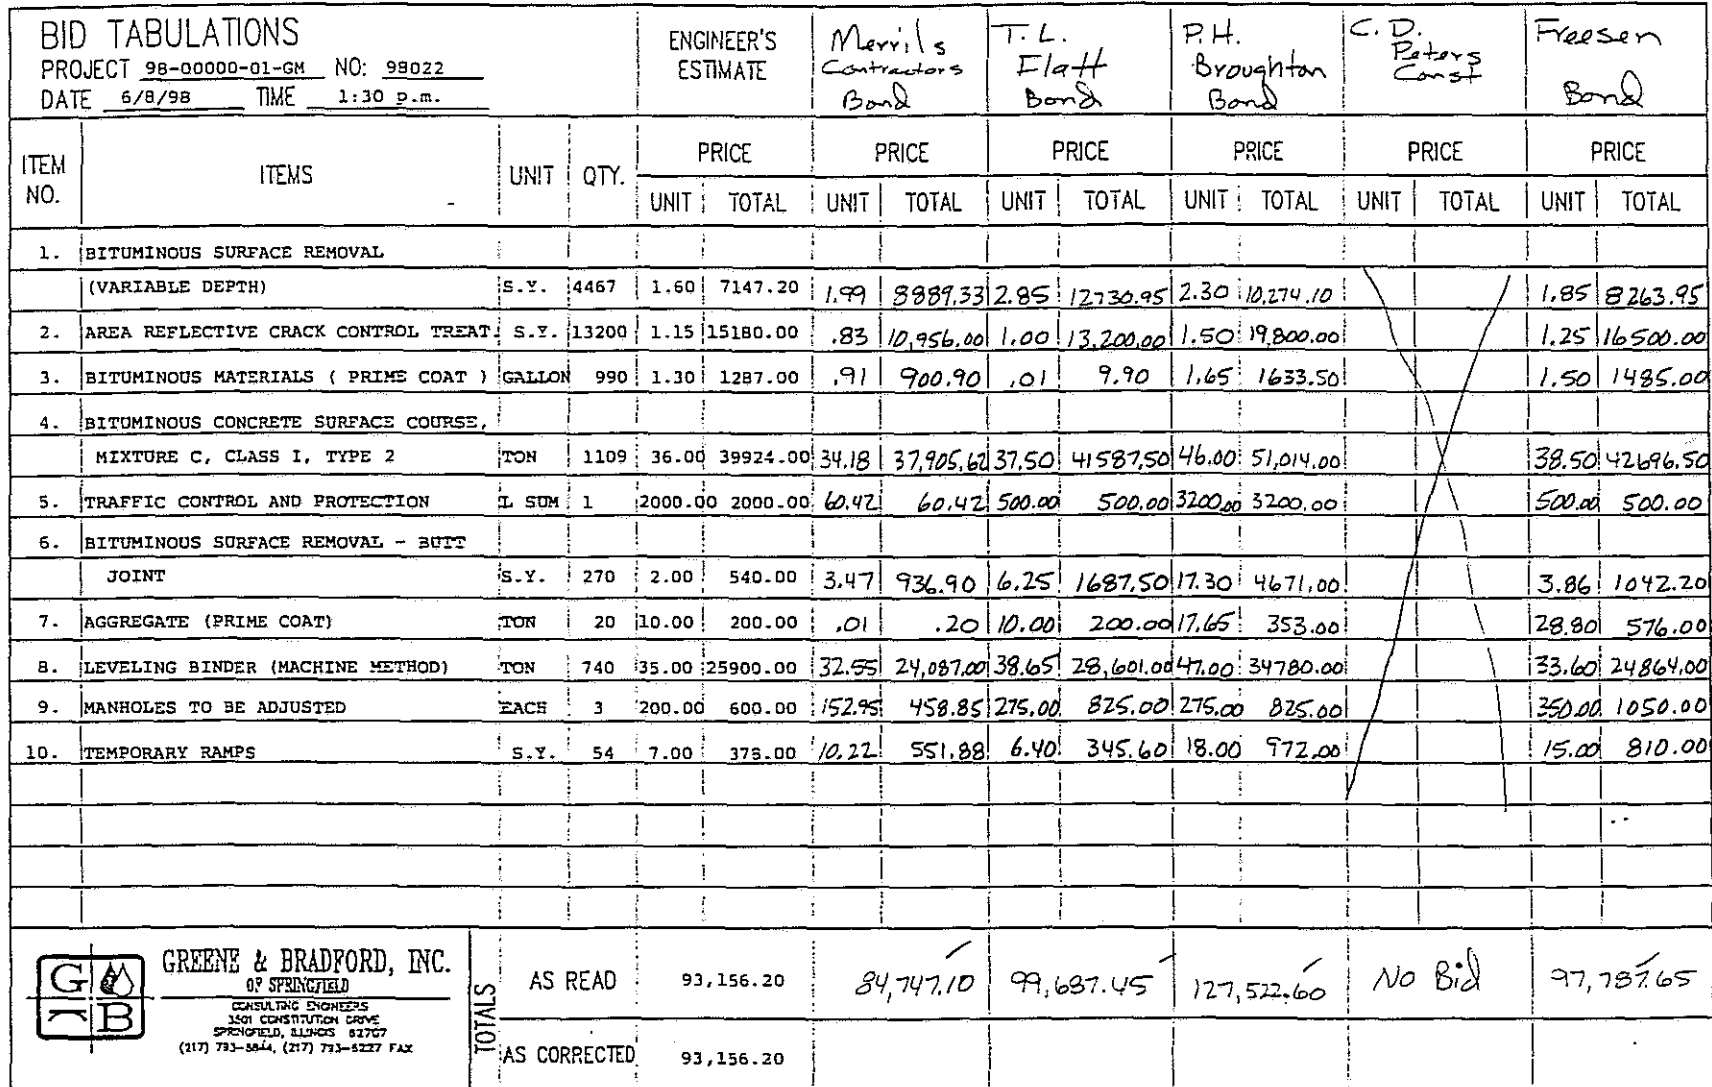 BID TABULATIONS
PROJECT 98-00000-01-GM NO: 98022
DATE 6/8/98 TIME 1:30 p.m.
ENGINEER'S ESTIMATE
Merril's Contractors Bond
T. L. Flatt Bond
P.H. Broughton Bond
C. D. Peters Const
Freesen Bond
ITEM NO. ITEMS UNIT QTY. PRICE PRICE PRICE PRICE PRICE PRICE
UNIT TOTAL UNIT TOTAL UNIT TOTAL UNIT TOTAL UNIT TOTAL UNIT TOTAL
1. BITUMINOUS SURFACE REMOVAL
(VARIABLE DEPTH) S.Y. 4467 1.60 7147.20 1.99 8889.33 2.85 12730.95 2.30 10,274.10 1.85 8263.95
2. AREA REFLECTIVE CRACK CONTROL TREAT. S.Y. 13200 1.15 15180.00 .83 10,956.00 1.00 13,200.00 1.50 19,800.00 1.25 16500.00
3. BITUMINOUS MATERIALS ( PRIME COAT ) GALLON 990 1.30 1287.00 .91 900.90 .01 9.90 1.65 1633.50 1.50 1485.00
4. BITUMINOUS CONCRETE SURFACE COURSE,
MIXTURE C, CLASS I, TYPE 2 TON 1109 36.00 39924.00 34.18 37,905.62 37.50 41587.50 46.00 51,014.00 38.50 42696.50
5. TRAFFIC CONTROL AND PROTECTION L SUM 1 2000.00 2000.00 60.42 60.42 500.00 500.00 3200.00 3200.00 500.00 500.00
6. BITUMINOUS SURFACE REMOVAL - BUTT
JOINT S.Y. 270 2.00 540.00 3.47 936.90 6.25 1687.50 17.30 4671.00 3.86 1042.20
7. AGGREGATE (PRIME COAT) TON 20 10.00 200.00 .01 .20 10.00 200.00 17.65 353.00 28.80 576.00
8. LEVELING BINDER (MACHINE METHOD) TON 740 35.00 25900.00 32.55 24,087.00 38.65 28,601.00 47.00 34780.00 33.60 24864.00
9. MANHOLES TO BE ADJUSTED EACH 3 200.00 600.00 152.95 458.85 275.00 825.00 275.00 825.00 350.00 1050.00
10. TEMPORARY RAMPS S.Y. 54 7.00 378.00 10.22 551.88 6.40 345.60 18.00 972.00 15.00 810.00
G B
GREENE & BRADFORD, INC.
OF SPRINGFIELD
CONSULTING ENGINEERS
3501 CONSTITUTION DRIVE
SPRINGFIELD, ILLINOIS 62707
(217) 793-8844, (217) 793-6227 FAX
TOTALS
AS READ 93,156.20 84,747.10 99,687.45 127,522.60 No Bid 97,787.65
AS CORRECTED 93,156.20